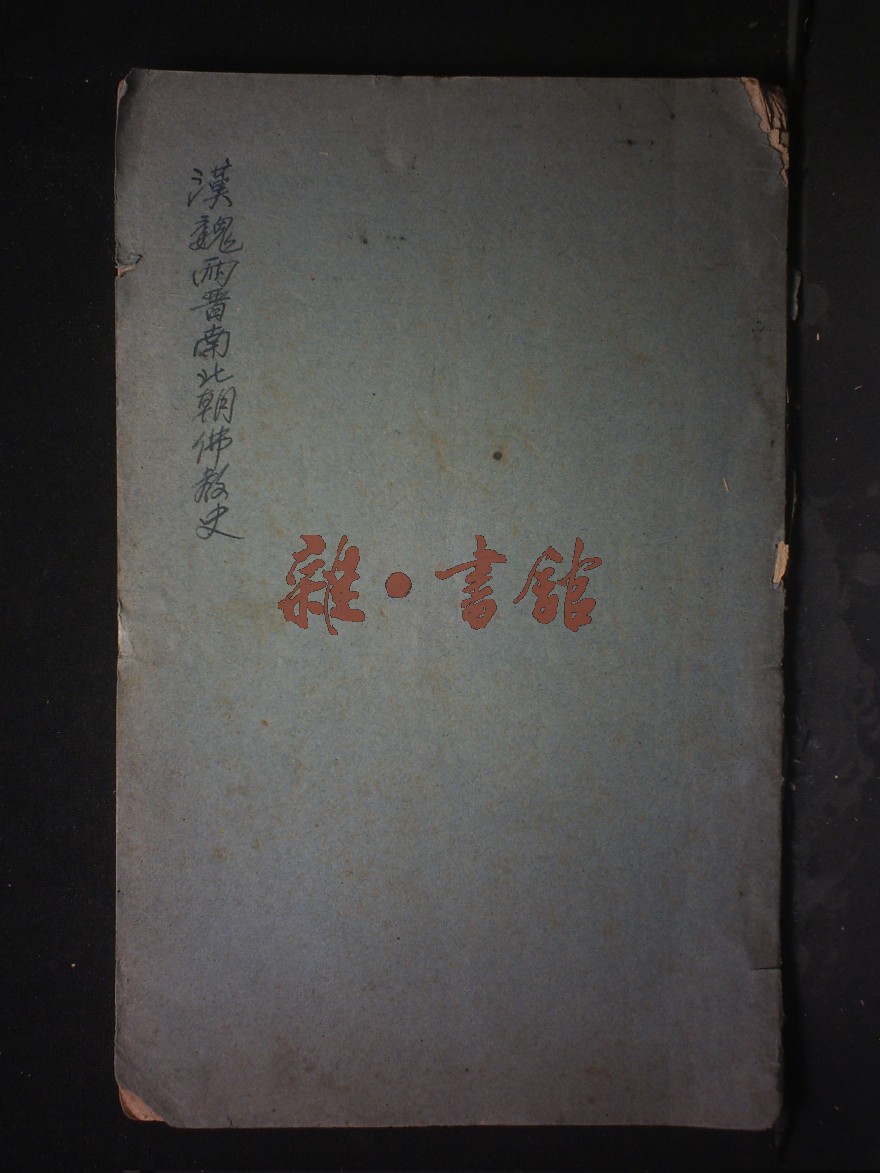 漢魏兩晋南北朝佛教史
雜·書館